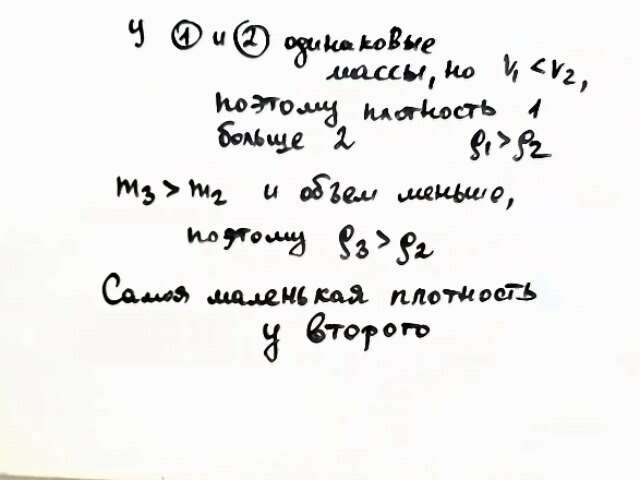 У ① и ② одинаковые
массы, но V₁ < V₂,
поэтому плотность 1
больше 2 ρ₁ > ρ₂
m₃ > m₂ и объем меньше,
поэтому ρ₃ > ρ₂
Самая маленькая плотность
у второго